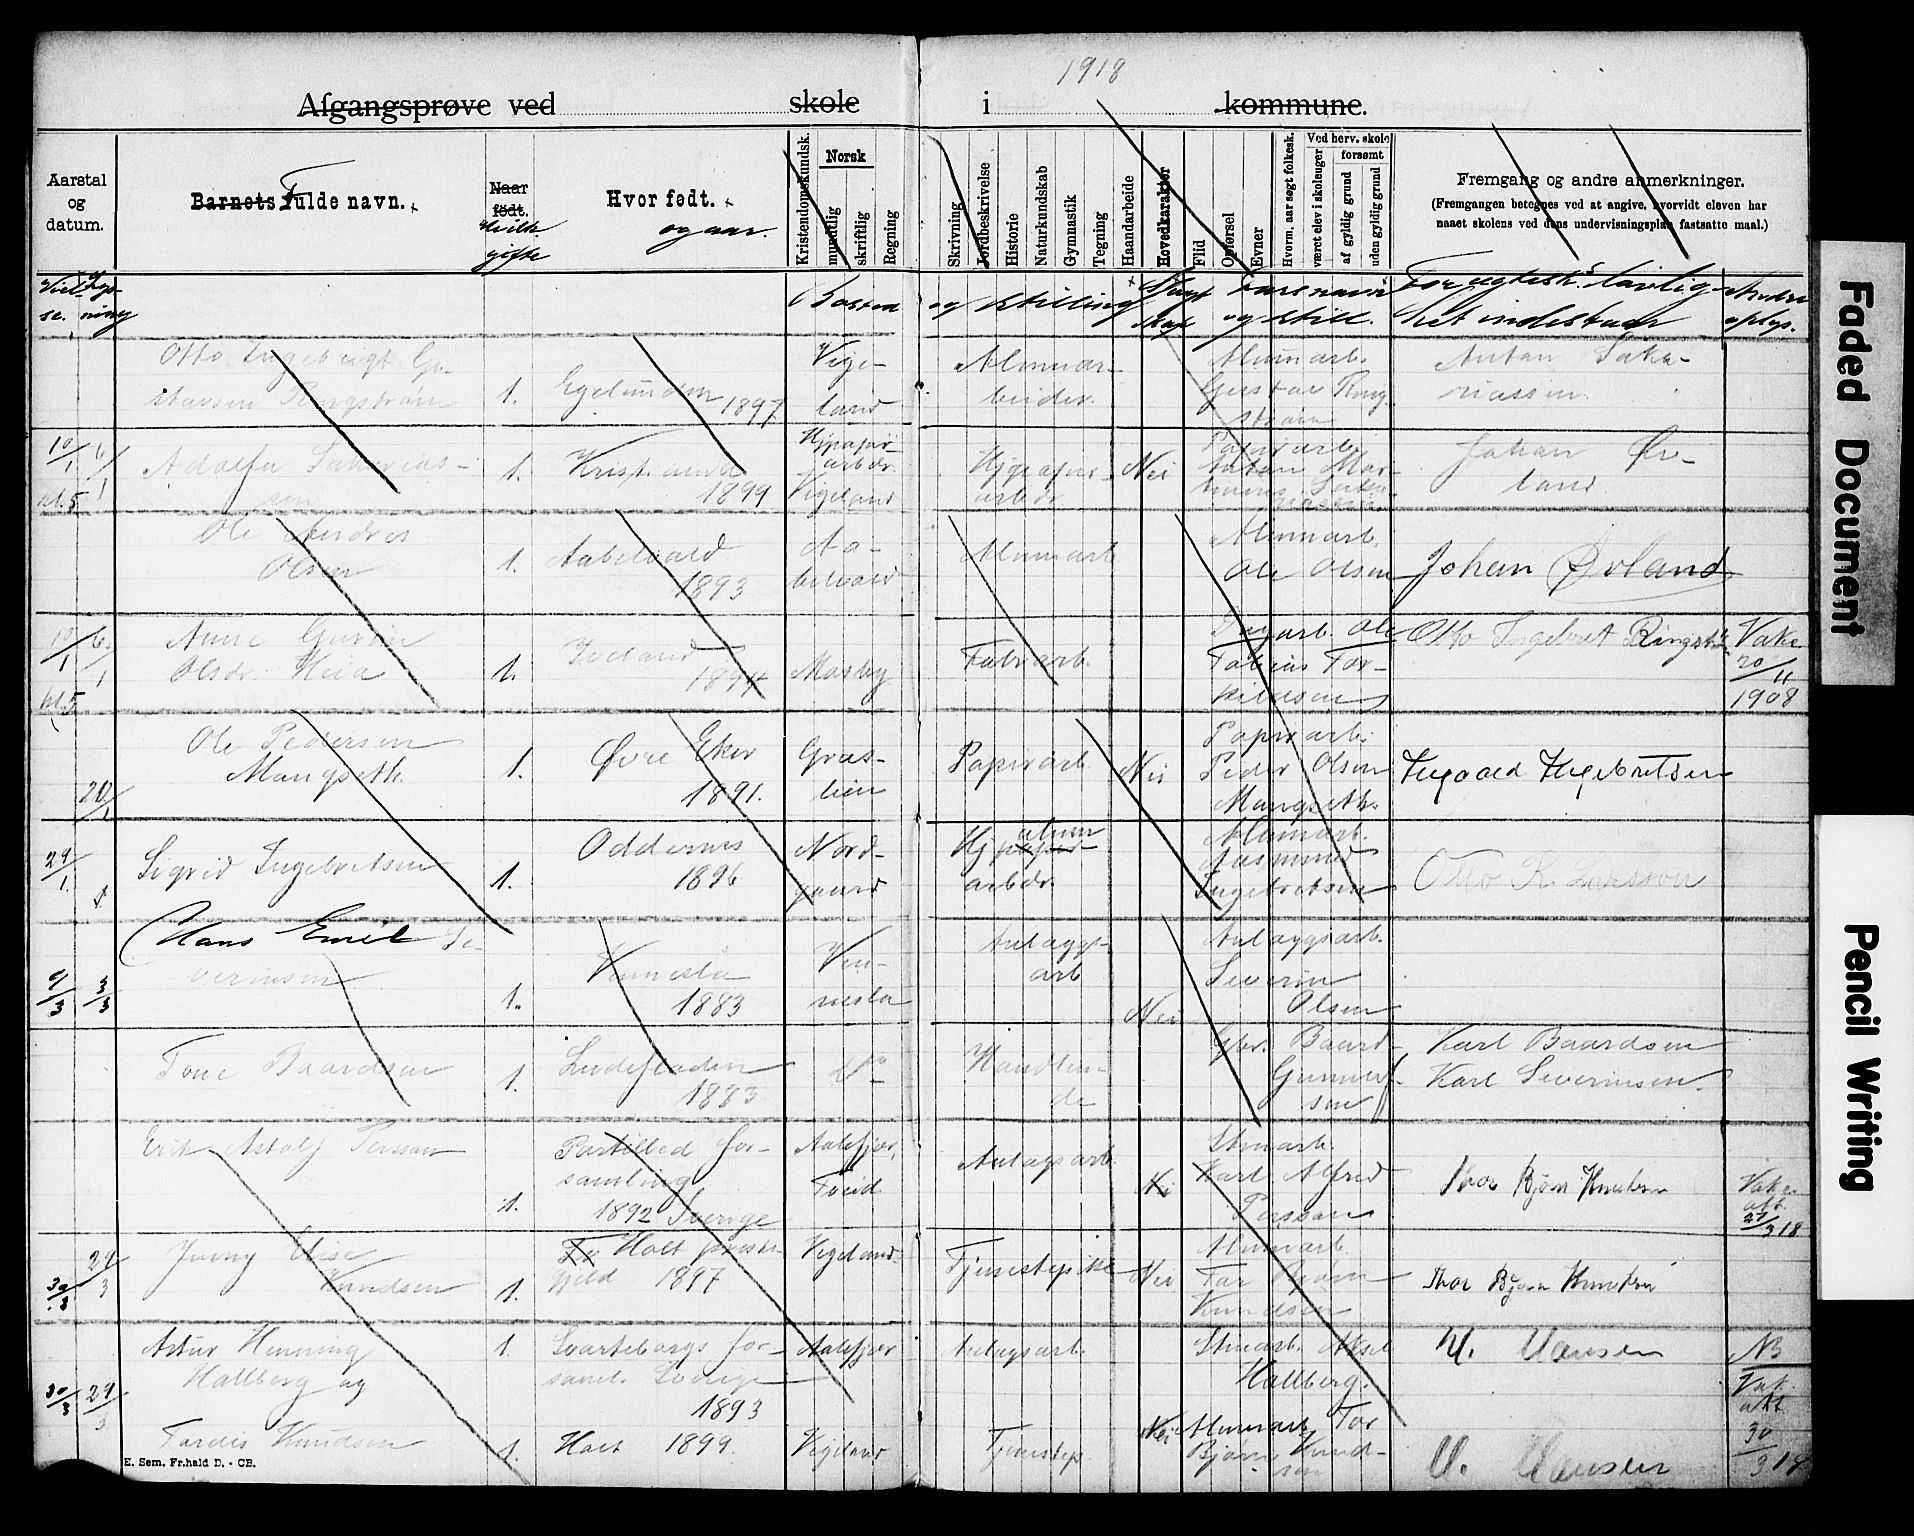 1918
Afgangsprøve ved skole i kommune.
Aarstal og datum.
Barnets Fulde navn.
Naar født.
Hvilk gifte
Hvor født.
og aar.
Kristendomskundsk.
Norsk
mundtlig
skriftlig
Regning
Skrivning
Jordbeskrivelse
Historie
Naturkundskab
Gymnastik
Tegning
Haandarbeide
Hovedkarakter
Flid
Opførsel
Evner
Hvorm. aar søgt folkesk.
Ved herv. skole
været elev i skoleuger
forsømt
af gyldig grund
uden gyldig grund
Fremgang og andre anmerkninger.
(Fremgangen betegnes ved at angive, hvorvidt eleven har
naaet skolens ved dens undervisningsplan fastsatte maal.)
Viel-se. Lys-ning
Bosted og stilling
Slegt skap
Fars navn og still.
For egtesk. lovlighet indestaar
Andre oplys.
Otto Ingebrigt Gu-
stavsen Ringstrøm
1.
Egelunden 1897
Vige-
land
Alumar-
beider.
Alumarb.
Gustav Ring-
strøm
Anton Saka-
riassen.
10/1 6/1 kl. 5
Adolfa Sakarias-
sen
1.
Kristiansand
1899
Hjpapir-
arbdr.
Vigeland
Hjpapir-
arbdr.
Nei
Papirarb.
Anton Mar-
tinius Saka-
riassen
Johan Øv-
land
Ole Andres
Olsen
1.
Aabelvold
1893
Aa-
belvold
Alumarb
Alumarb.
Ole Olsen
Johan Øvland
10/1 6/1 kl. 5
Anne Gurine
Olsdr. Heia
1.
Iveland
1894
Mosby
Fabrarb.
Dagarb. Ole
Tobias Tor-
kildsen
Otto Ingebret Ringstr
Vake.
20/11
1908
20/1
Ole Pedersen
Mangseth.
1.
Øvre Eker
1891.
Gras-
lien
Papirarb.
Nei
Papirarb.
Peder Olsen
Mangseth.
Ingvald Ingebretsen
24/1
Sigrid Ingebretsen
1.
Oddernes
1896
Nord-
gaard
Hjpapir alum
arbdr.
Alumarb.
Aasmund
Ingebretsen
Otto K. Larsson
9/3 3/3
Hans Emil Se-
verinsen
1.
Vennesla
1883
Ven-
nesla
Anlægs-
arb
Nei
Anlægsarb.
Severin
Olsen
Tone Baardsen
1.
1883
Do
Handlen-
de
Gbr. Baard
Gunnuf-
sen
Karl Baardsen
Karl Severinsen.
Erik Astolf Persson
1.
Partilled for-
samling
1892 Sverige
Aalefjær,
Tveid
Anlagsarb.
Nei
Stenarb.
Karl Alfred
Persson
Thor Bjørn Knutsen
Vake
att.
27/3 18
30/3 24/3
Jenny Elise
Knudsen
1.
Holt preste
gjeld 1897
Vigeland
Tjenestepike
Nei
Alumarb.
Tor Bjørn
Knudsen
Thor Bjørn Knutsen
30/3 24/3
Artur Henning
Hallberg og
1.
Svarteborgs for-
saml. Sverige
1893
Aalefjær
Anlagsarb.
Stenarb. Aksel
Hallberg.
H. Hansen
NB
Vak.
akt
30/3 18
Tordis Knudsen
1.
Holt 1899.
Vigeland
Tjenestep.
Nei
Alumarb. Tor
Bjørn Knud-
sen
H. Hansen
E. Sem, Fr.hald D. - CB.
Faded Document
Pencil Writing